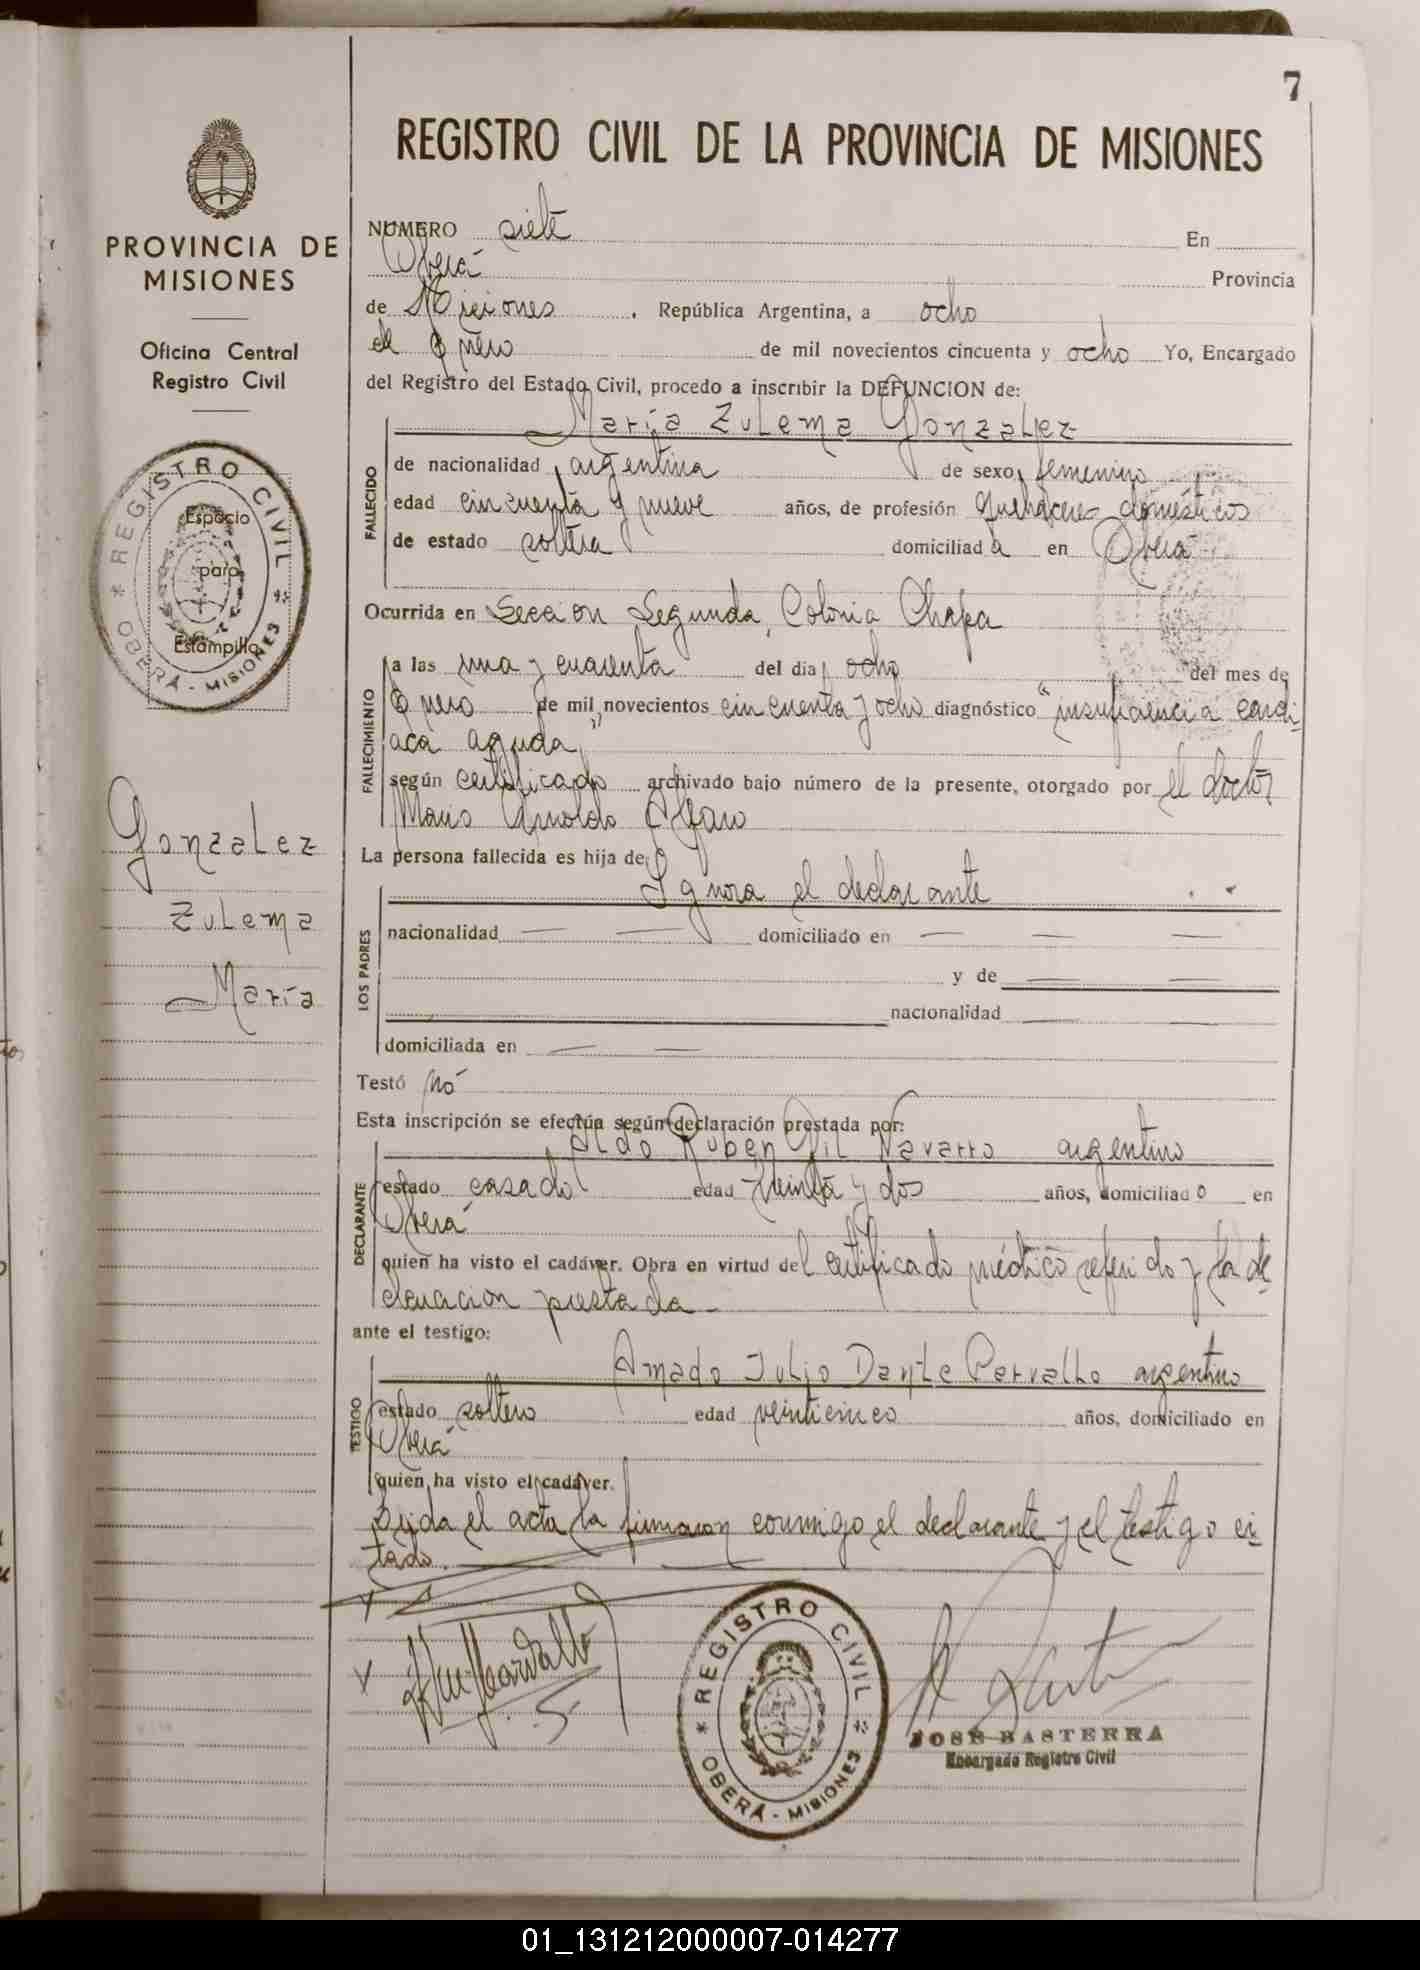 7
REGISTRO CIVIL DE LA PROVINCIA DE MISIONES
PROVINCIA DE
MISIONES
Oficina Central
Registro Civil
REGISTRO CIVIL
OBERÁ - MISIONES
Espacio
para
Estampilla
Gonzalez
Zulema
María
NUMERO siete En
Oberá Provincia
de Misiones, República Argentina, a ocho
de Enero de mil novecientos cincuenta y ocho Yo, Encargado
del Registro del Estado Civil, procedo a inscribir la DEFUNCION de:
María Zulema Gonzalez
FALLECIDO
de nacionalidad argentina de sexo femenino
edad cincuenta y nueve años, de profesión quehaceres domésticos
de estado soltera domiciliada en Oberá
Ocurrida en Sección Segunda, Colonia Chapa
FALLECIMIENTO
a las una y cuarenta del dia ocho del mes de
Enero de mil novecientos cincuenta y ocho diagnóstico "insuficiencia cardi
aca aguda"
según certificado archivado bajo número de la presente, otorgado por el doctor
Mario Arnoldo Alfaro
La persona fallecida es hija de:
Ignora el declarante
LOS PADRES
nacionalidad — — domiciliado en — — —
y de — —
nacionalidad — —
domiciliada en — —
Testó nó
Esta inscripción se efectúa según declaración prestada por:
Aldo Ruben Gil Navarro argentino
DECLARANTE
estado casado edad treinta y dos años, domiciliado en
Oberá
quien ha visto el cadáver. Obra en virtud del certificado médico referido y la de
claracion prestada -
ante el testigo:
Amado Julio Dante Carvallo argentino
TESTIGO
estado soltero edad veinticinco años, domiciliado en
Oberá
quien ha visto el cadáver.
Leida el acta la firmaron conmigo el declarante y el testigo ci
tado.
REGISTRO CIVIL
OBERÁ - MISIONES
JOSE BASTERRA
Encargado Registro Civil
01_131212000007-014277